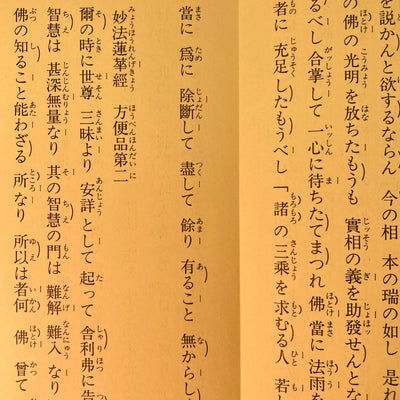 を説かんと欲するならん 今の相 本の瑞の如し 是れ
の佛の光明を放ちたもうも 實相の義を助發せんとな
るべし 合掌して一心に待ちたてまつれ 佛當に法雨を
者に充足したもうべし「諸の三乘を求むる人 若し
當に爲に除斷して盡して餘り有ること無からし
妙法蓮華經 方便品第二
爾の時に世尊 三昧より安詳として起って 舍利弗に告
智慧は甚深無量なり 其の智慧の門は難解難入なり
佛の知ること能わざる所なり 所以は者何 佛曾て